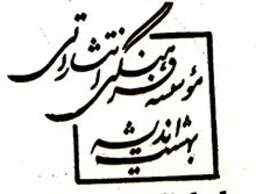 مؤسسه فرهنگی انتشاراتی
بهشت اندیشه